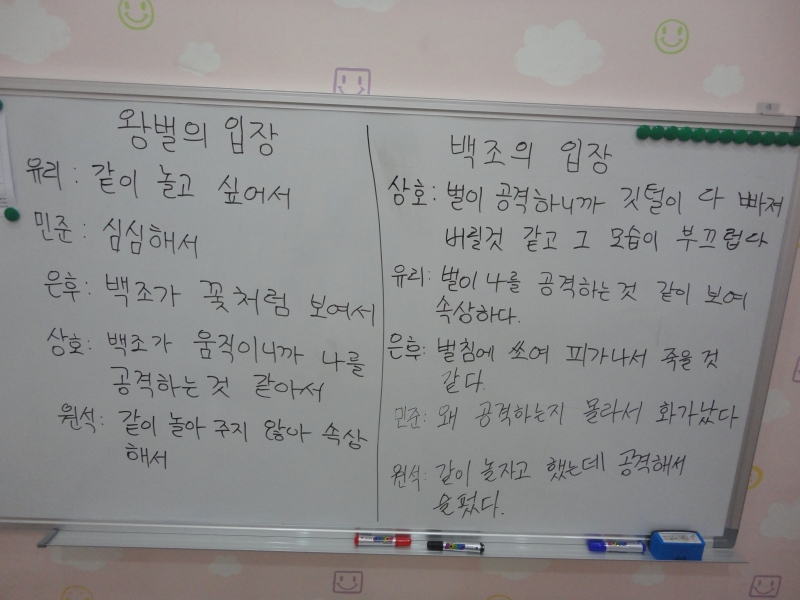 왕벌의 입장
유리 : 같이 놀고 싶어서
민준 : 심심해서
은후 : 백조가 꽃처럼 보여서
상호 : 백조가 움직이니까 나를
공격하는 것 같아서
원석 : 같이 놀아 주지 않아 속상
해서
백조의 입장
상호 : 벌이 공격하니까 깃털이 다 빠져
버릴것 같고 그 모습이 부끄럽다
유리 : 벌이 나를 공격하는 것 같이 보여
속상하다.
은후 : 벌침에 쏘여 피가나서 죽을 것
같다.
민준 : 왜 공격하는지 몰라서 화가났다
원석 : 같이 놀자고 했는데 공격해서
슬펐다.